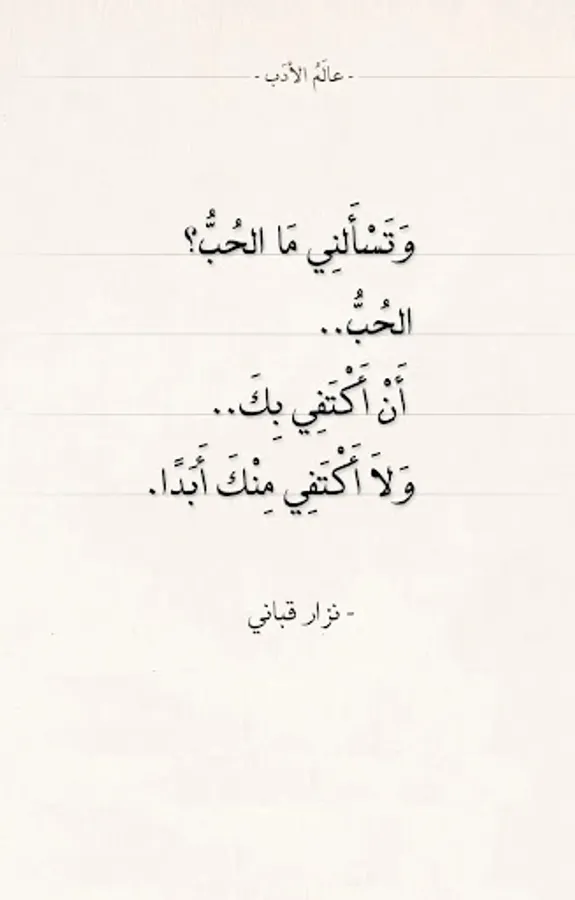 - عالَمُ الأدَب -
وَتَسْأَلنِي مَا الحُبُّ؟
الحُبُّ..
أَنْ أَكْتَفِي بِكَ..
وَلاَ أَكْتَفِي مِنْكَ أَبَدًا.
- نزار قباني